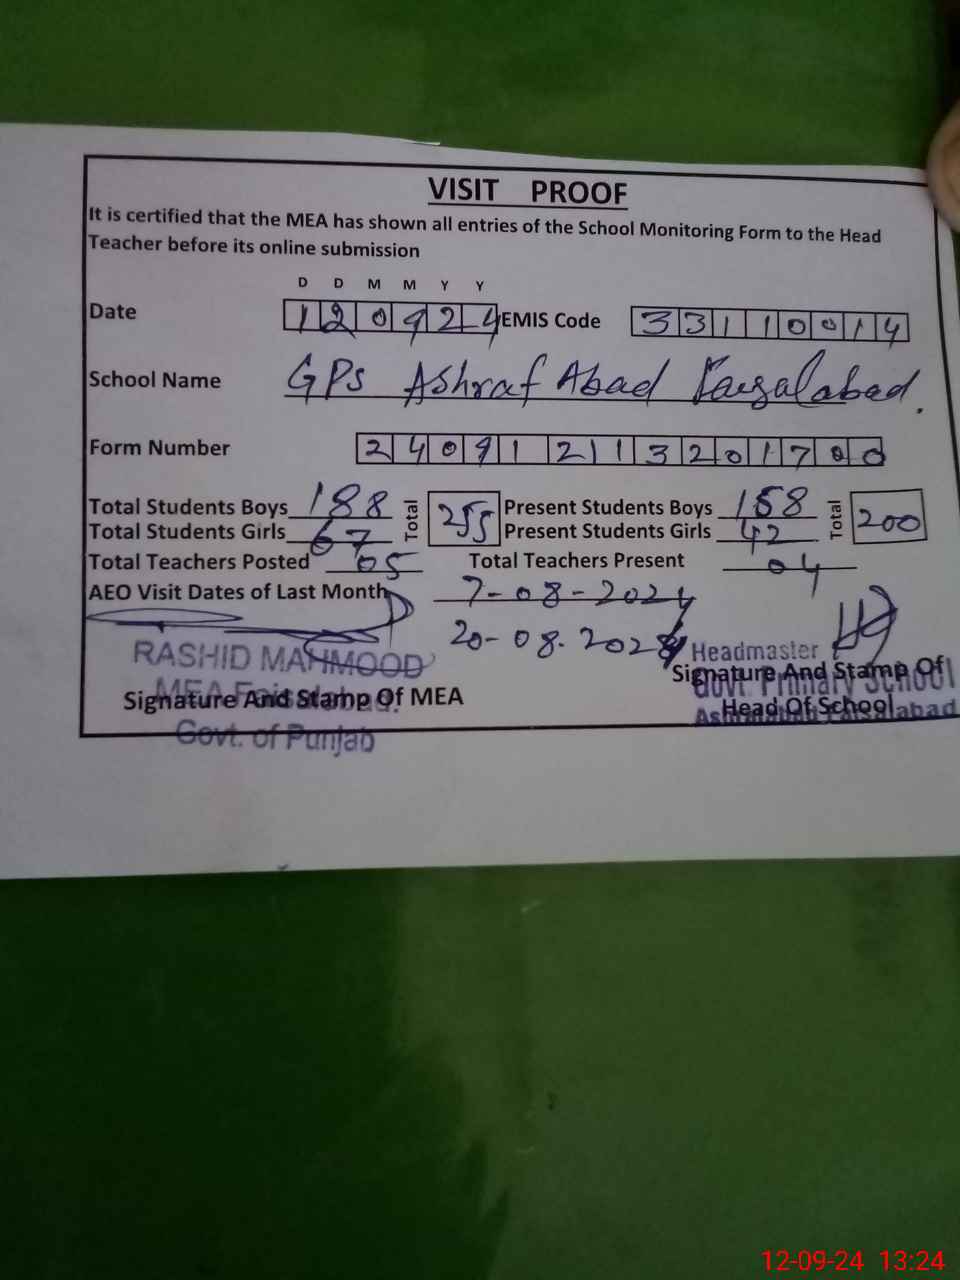 VISIT PROOF
It is certified that the MEA has shown all entries of the School Monitoring Form to the Head
Teacher before its online submission
D D M M Y Y
Date 120924 EMIS Code 33110014
School Name GPS Ashraf Abad Faisalabad.
Form Number 240912113201700
Total Students Boys 188 Total 255 Present Students Boys 158 Total 200
Total Students Girls 67 Present Students Girls 42
Total Teachers Posted 05 Total Teachers Present 04
AEO Visit Dates of Last Month 7-08-2024
20-08.2024
RASHID MAHMOOD
MEA Faisalabad.
Govt. of Punjab
Signature And Stamp Of MEA
Headmaster
Govt. Primary School
Faisalabad
Signature And Stamp Of
Head Of School
12-09-24 13:24